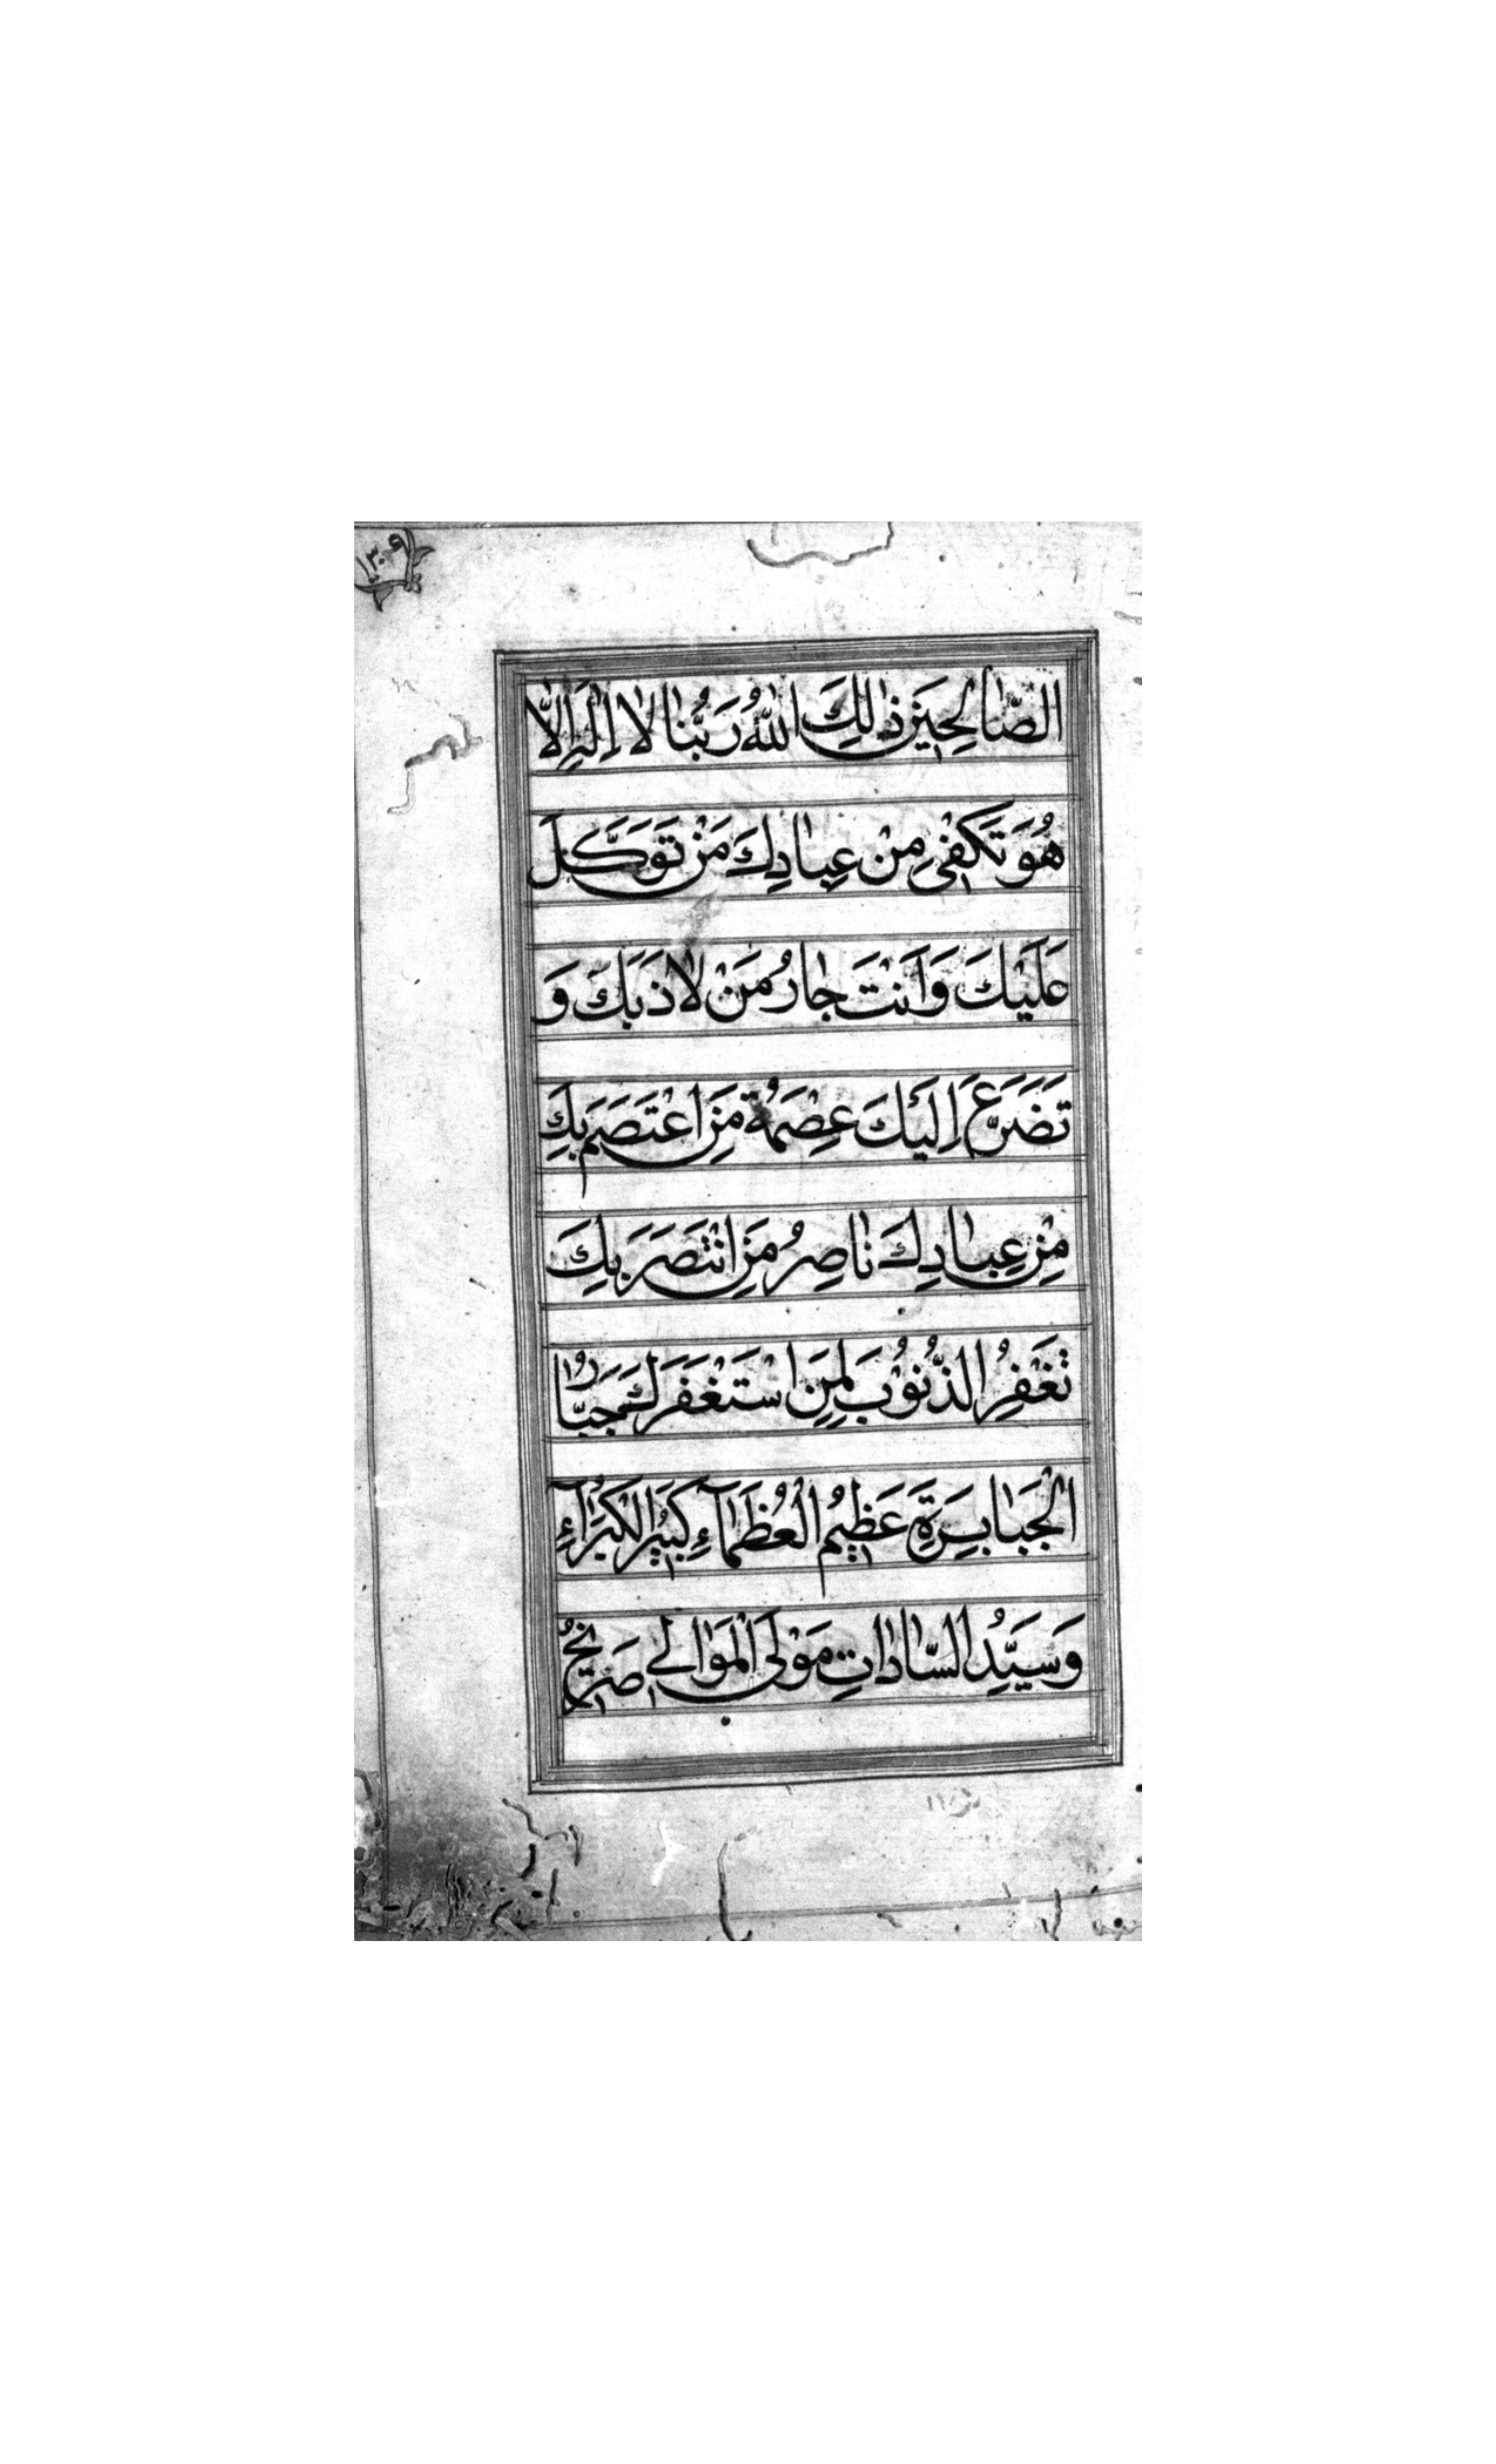 ١٣٠٩
الصَّالِحِينَ ذٰلِكَ اللهُ رَبُّنا لا اِلٰهَ اِلّا
هُوَ تَكْفِی مِنْ عِبادِكَ مَنْ تَوَكَّلَ
عَلَيْكَ وَاَنْتَ جارُ مَنْ لاذَ بِكَ وَ
تَضَرَّعَ اِلَيْكَ عِصْمَةُ مَنِ اعْتَصَمَ بِكَ
مِنْ عِبادِكَ ناصِرُ مَنِ انْتَصَرَ بِكَ
تَغْفِرُ الذُّنُوْبَ لِمَنِ اسْتَغْفَرَكَ جَبّارُ
الْجَبابِرَةِ عَظِيمُ الْعُظَمآءِ كَبِيرُ الْكُبَرآءِ
وَسَيِّدُ السّاداتِ مَوْلَی الْمَوَالے صَرِيخُ